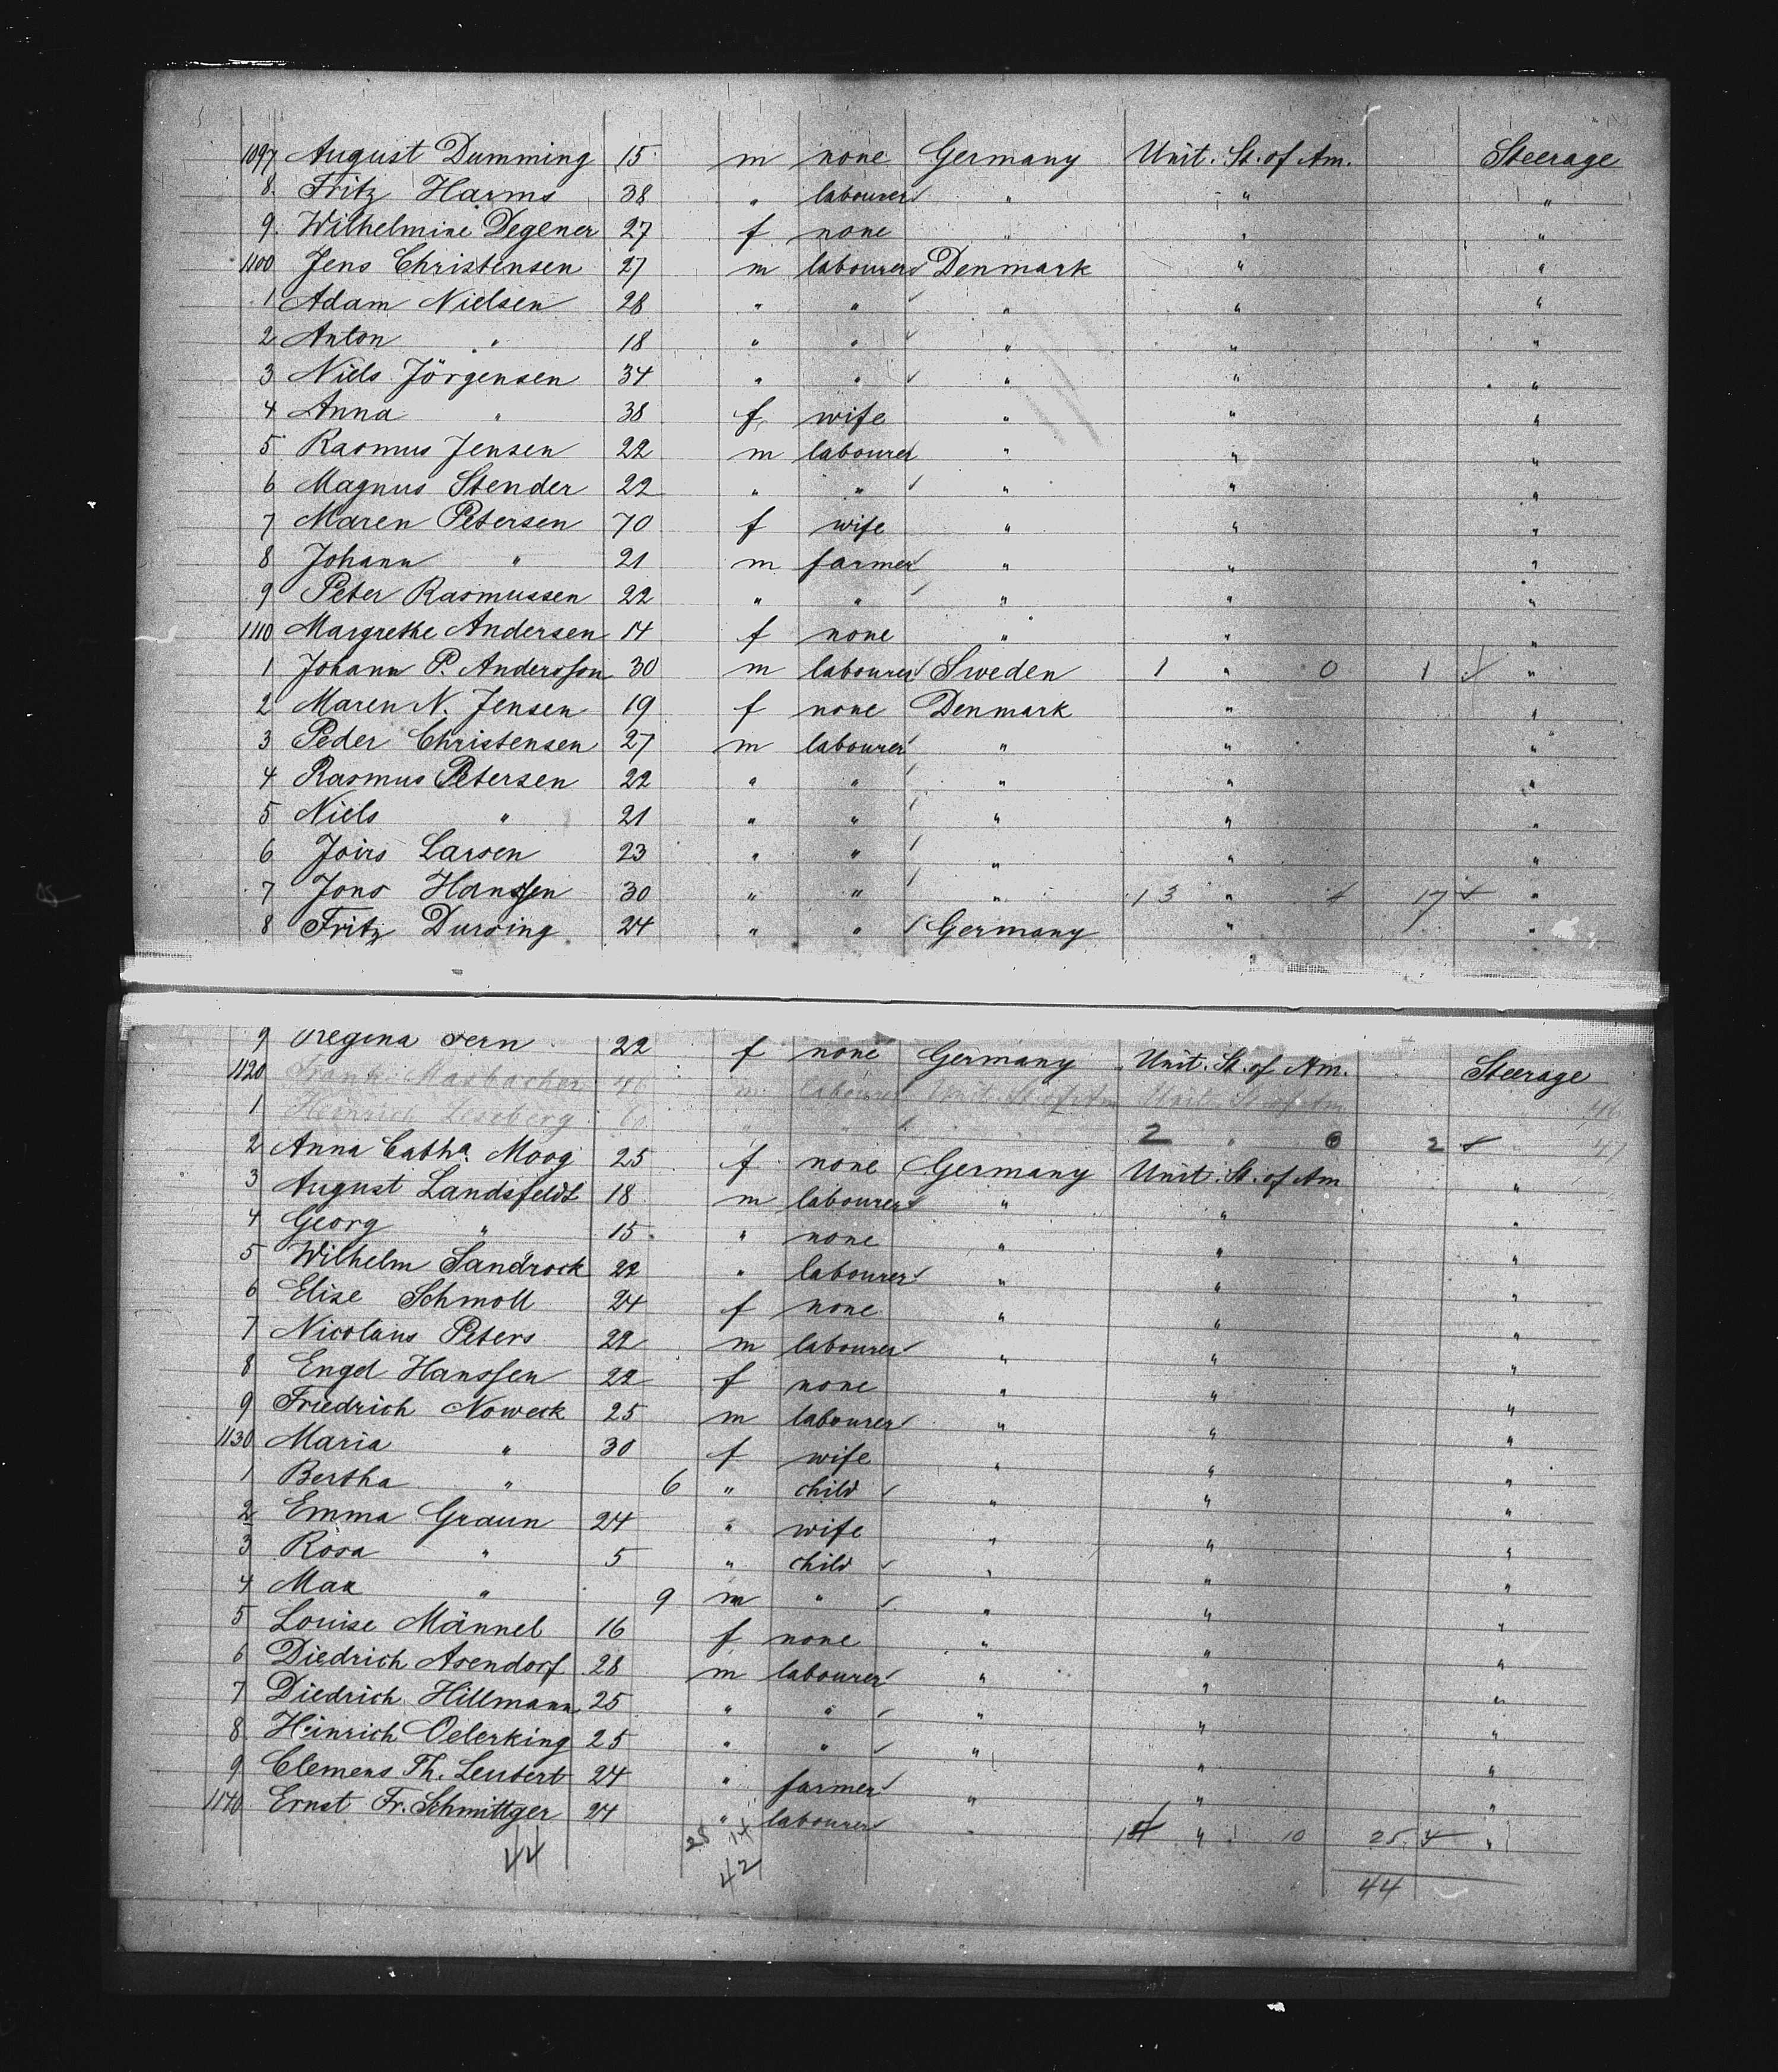 1097 August Dumming 15 m none Germany Unit. St. of Am. Steerage
8. Fritz Harms 38 " labourer " " "
9. Wilhelmine Degener 27 f none " " "
1100 Jens Christensen 27 m labourer Denmark " "
1 Adam Nielsen 28 " " " " "
2 Anton " 18 " " " " "
3 Niels Jörgensen 34 " " " " "
4 Anna " 38 f wife " " "
5 Rasmus Jensen 22 m labourer " " "
6 Magnus Stender 22 " " " " "
7 Maren Petersen 70 f wife " " "
8 Johann " 21 m farmer " " "
9 Peter Rasmussen 22 " " " " "
1110 Margrethe Andersen 14 f none " " "
1 Johann P. Andersson 30 m labourer Sweden 1 " 0 1 "
2 Maren N. Jensen 19 f none Denmark " "
3 Peder Christensen 27 m labourer " " "
4 Rasmus Petersen 22 " " " " "
5 Niels " 21 " " " " "
6 Joirs Larsen 23 " " " " "
7 Jons Hanssen 30 " " " 13 " 4 17 "
8 Fritz Dursing 24 " " Germany " "
9 Regina Fern 22 f none Germany Unit. St. of Am. Steerage
1120 Masbacher 46 m labourer Unit. St. of Am Unit. St. of Am 46
1 Heinrich Leseberg 60 " " " 2 " 0 2 47
2 Anna Catha. Moog 25 f none Germany Unit. St. of Am "
3 August Landsfeldt 18 m labourer " " "
4 Georg " 15 " none " " "
5 Wilhelm Sandrock 22 " labourer " " "
6 Elise Schmoll 24 f none " " "
7 Nicolaus Peters 22 m labourer " " "
8 Engel Hanssen 22 f none " " "
9 Friedrich Noweck 25 m labourer " " "
1130 Maria " 30 f wife " " "
1 Bertha " 6 " child " " "
2 Emma Graun 24 " wife " " "
3 Rosa " 5 " child " " "
4 Max " 9 m " " " "
5 Louise Männel 16 f none " " "
6 Diedrich Asendorf 28 m labourer " " "
7 Diedrich Hillmann 25 " " " " "
8 Heinrich Oelerking 25 " " " " "
9 Clemens Th. Leubert 24 " farmer " " "
1140 Ernst Fr. Schmittger 24 " labourer " " 10 25 "
44 28 14 42 44